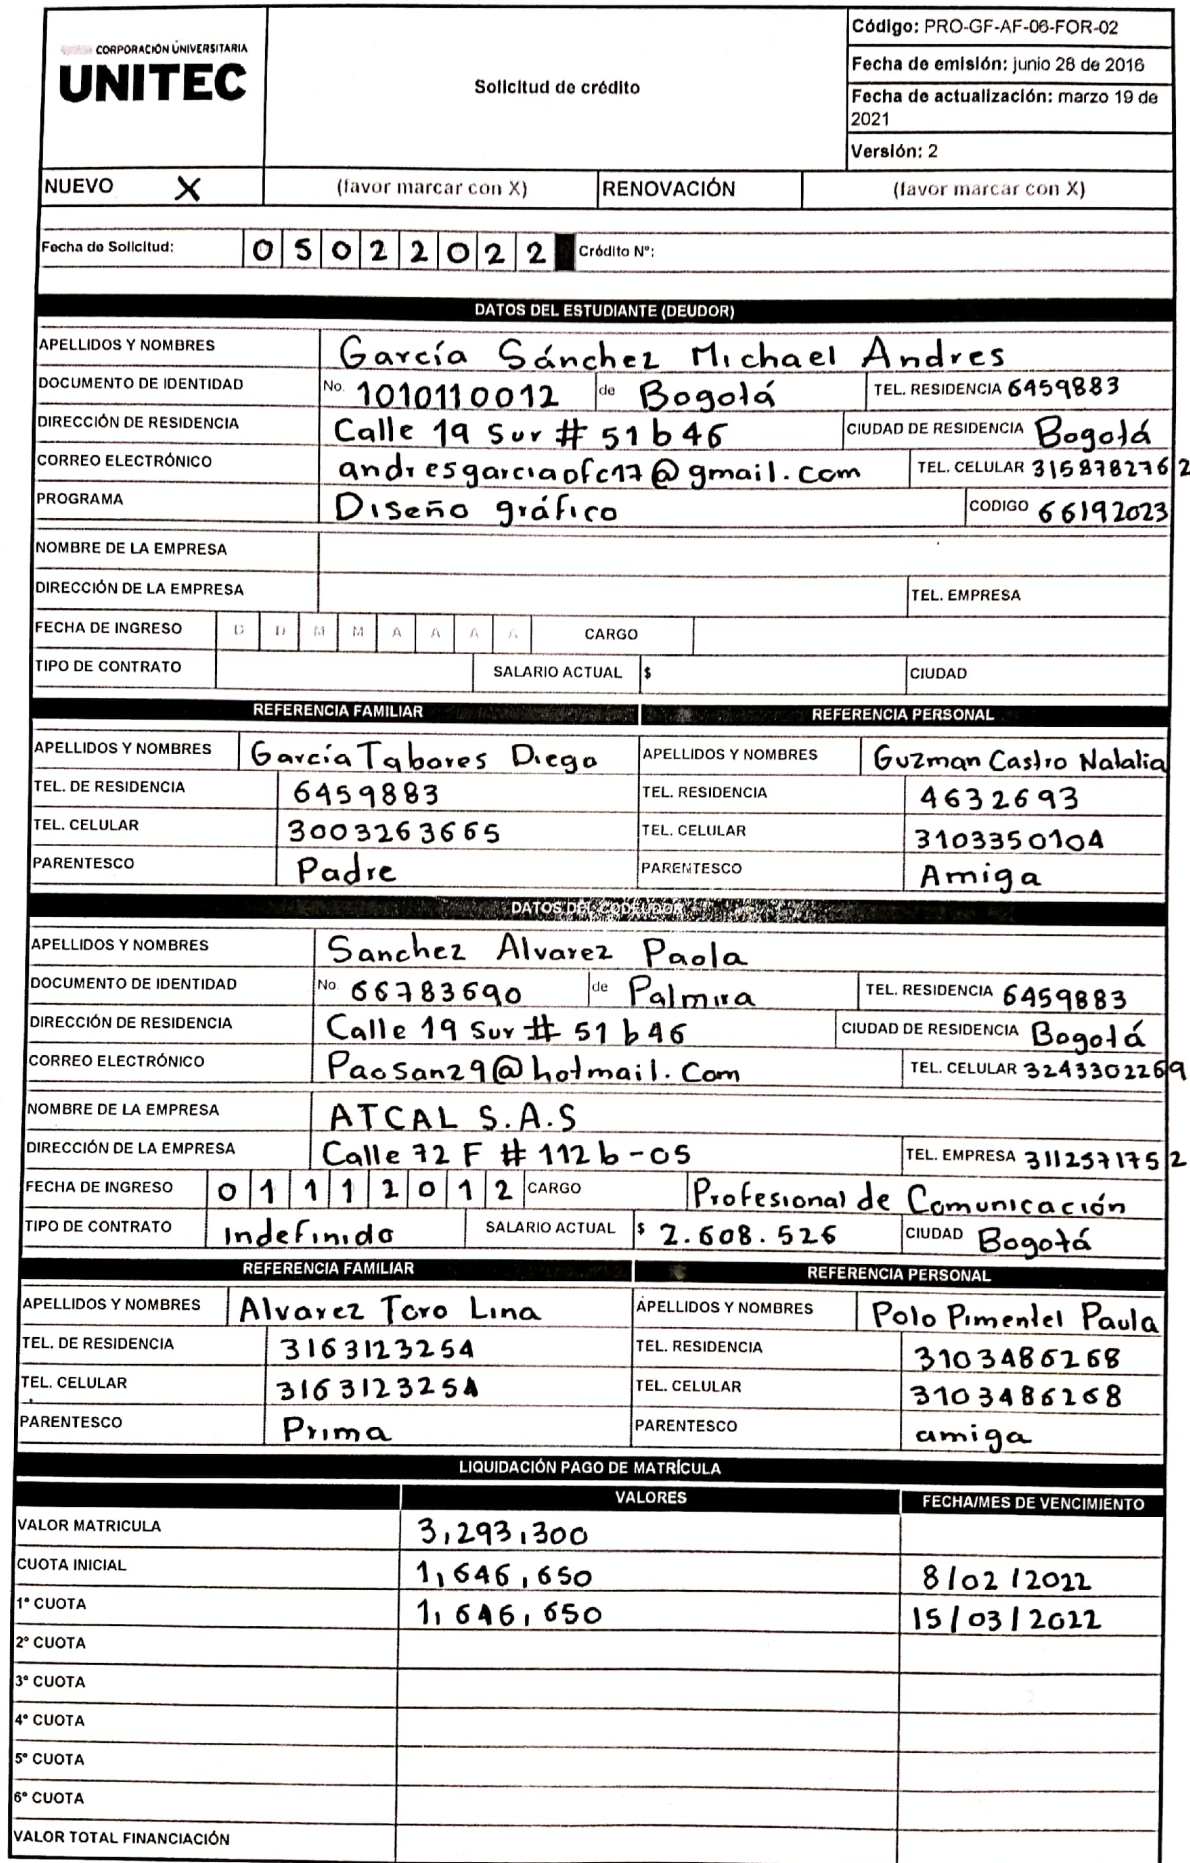 CORPORACIÓN UNIVERSITARIA
UNITEC
Solicitud de crédito
Código: PRO-GF-AF-06-FOR-02
Fecha de emisión: junio 28 de 2016
Fecha de actualización: marzo 19 de
2021
Versión: 2
NUEVO X (favor marcar con X) RENOVACIÓN (favor marcar con X)
Fecha de Solicitud: 0 5 0 2 2 0 2 2 Crédito N°:
DATOS DEL ESTUDIANTE (DEUDOR)
APELLIDOS Y NOMBRES García Sánchez Michael Andres
DOCUMENTO DE IDENTIDAD No. 1010110012 de Bogotá TEL. RESIDENCIA 6459883
DIRECCIÓN DE RESIDENCIA Calle 19 Sur # 51 b 46 CIUDAD DE RESIDENCIA Bogotá
CORREO ELECTRÓNICO andresgarciaofc17@gmail.com TEL. CELULAR 3158782762
PROGRAMA Diseño gráfico CODIGO 66192023
NOMBRE DE LA EMPRESA
DIRECCIÓN DE LA EMPRESA TEL. EMPRESA
FECHA DE INGRESO D D M M A A A A CARGO
TIPO DE CONTRATO SALARIO ACTUAL $ CIUDAD
REFERENCIA FAMILIAR REFERENCIA PERSONAL
APELLIDOS Y NOMBRES García Tabares Diego APELLIDOS Y NOMBRES Guzman Castro Natalia
TEL. DE RESIDENCIA 6459883 TEL. RESIDENCIA 4632693
TEL. CELULAR 3003263665 TEL. CELULAR 3103350104
PARENTESCO Padre PARENTESCO Amiga
DATOS DEL CODEUDOR
APELLIDOS Y NOMBRES Sanchez Alvarez Paola
DOCUMENTO DE IDENTIDAD No. 66783690 de Palmira TEL. RESIDENCIA 6459883
DIRECCIÓN DE RESIDENCIA Calle 19 Sur # 51 b 46 CIUDAD DE RESIDENCIA Bogotá
CORREO ELECTRÓNICO Paosan29@hotmail.Com TEL. CELULAR 3243302269
NOMBRE DE LA EMPRESA ATCAL S.A.S
DIRECCIÓN DE LA EMPRESA Calle 72 F # 112 b - 05 TEL. EMPRESA 3112571752
FECHA DE INGRESO 0 1 1 1 2 0 1 2 CARGO Profesional de Comunicación
TIPO DE CONTRATO Indefinido SALARIO ACTUAL $ 2.608.526 CIUDAD Bogotá
REFERENCIA FAMILIAR REFERENCIA PERSONAL
APELLIDOS Y NOMBRES Alvarez Toro Lina APELLIDOS Y NOMBRES Polo Pimentel Paula
TEL. DE RESIDENCIA 3163123254 TEL. RESIDENCIA 3103486268
TEL. CELULAR 3163123254 TEL. CELULAR 3103486268
PARENTESCO Prima PARENTESCO amiga
LIQUIDACIÓN PAGO DE MATRÍCULA
VALORES FECHA/MES DE VENCIMIENTO
VALOR MATRICULA 3,293,300
CUOTA INICIAL 1,646,650 8/02/2022
1° CUOTA 1,646,650 15/03/2022
2° CUOTA
3° CUOTA
4° CUOTA
5° CUOTA
6° CUOTA
VALOR TOTAL FINANCIACIÓN